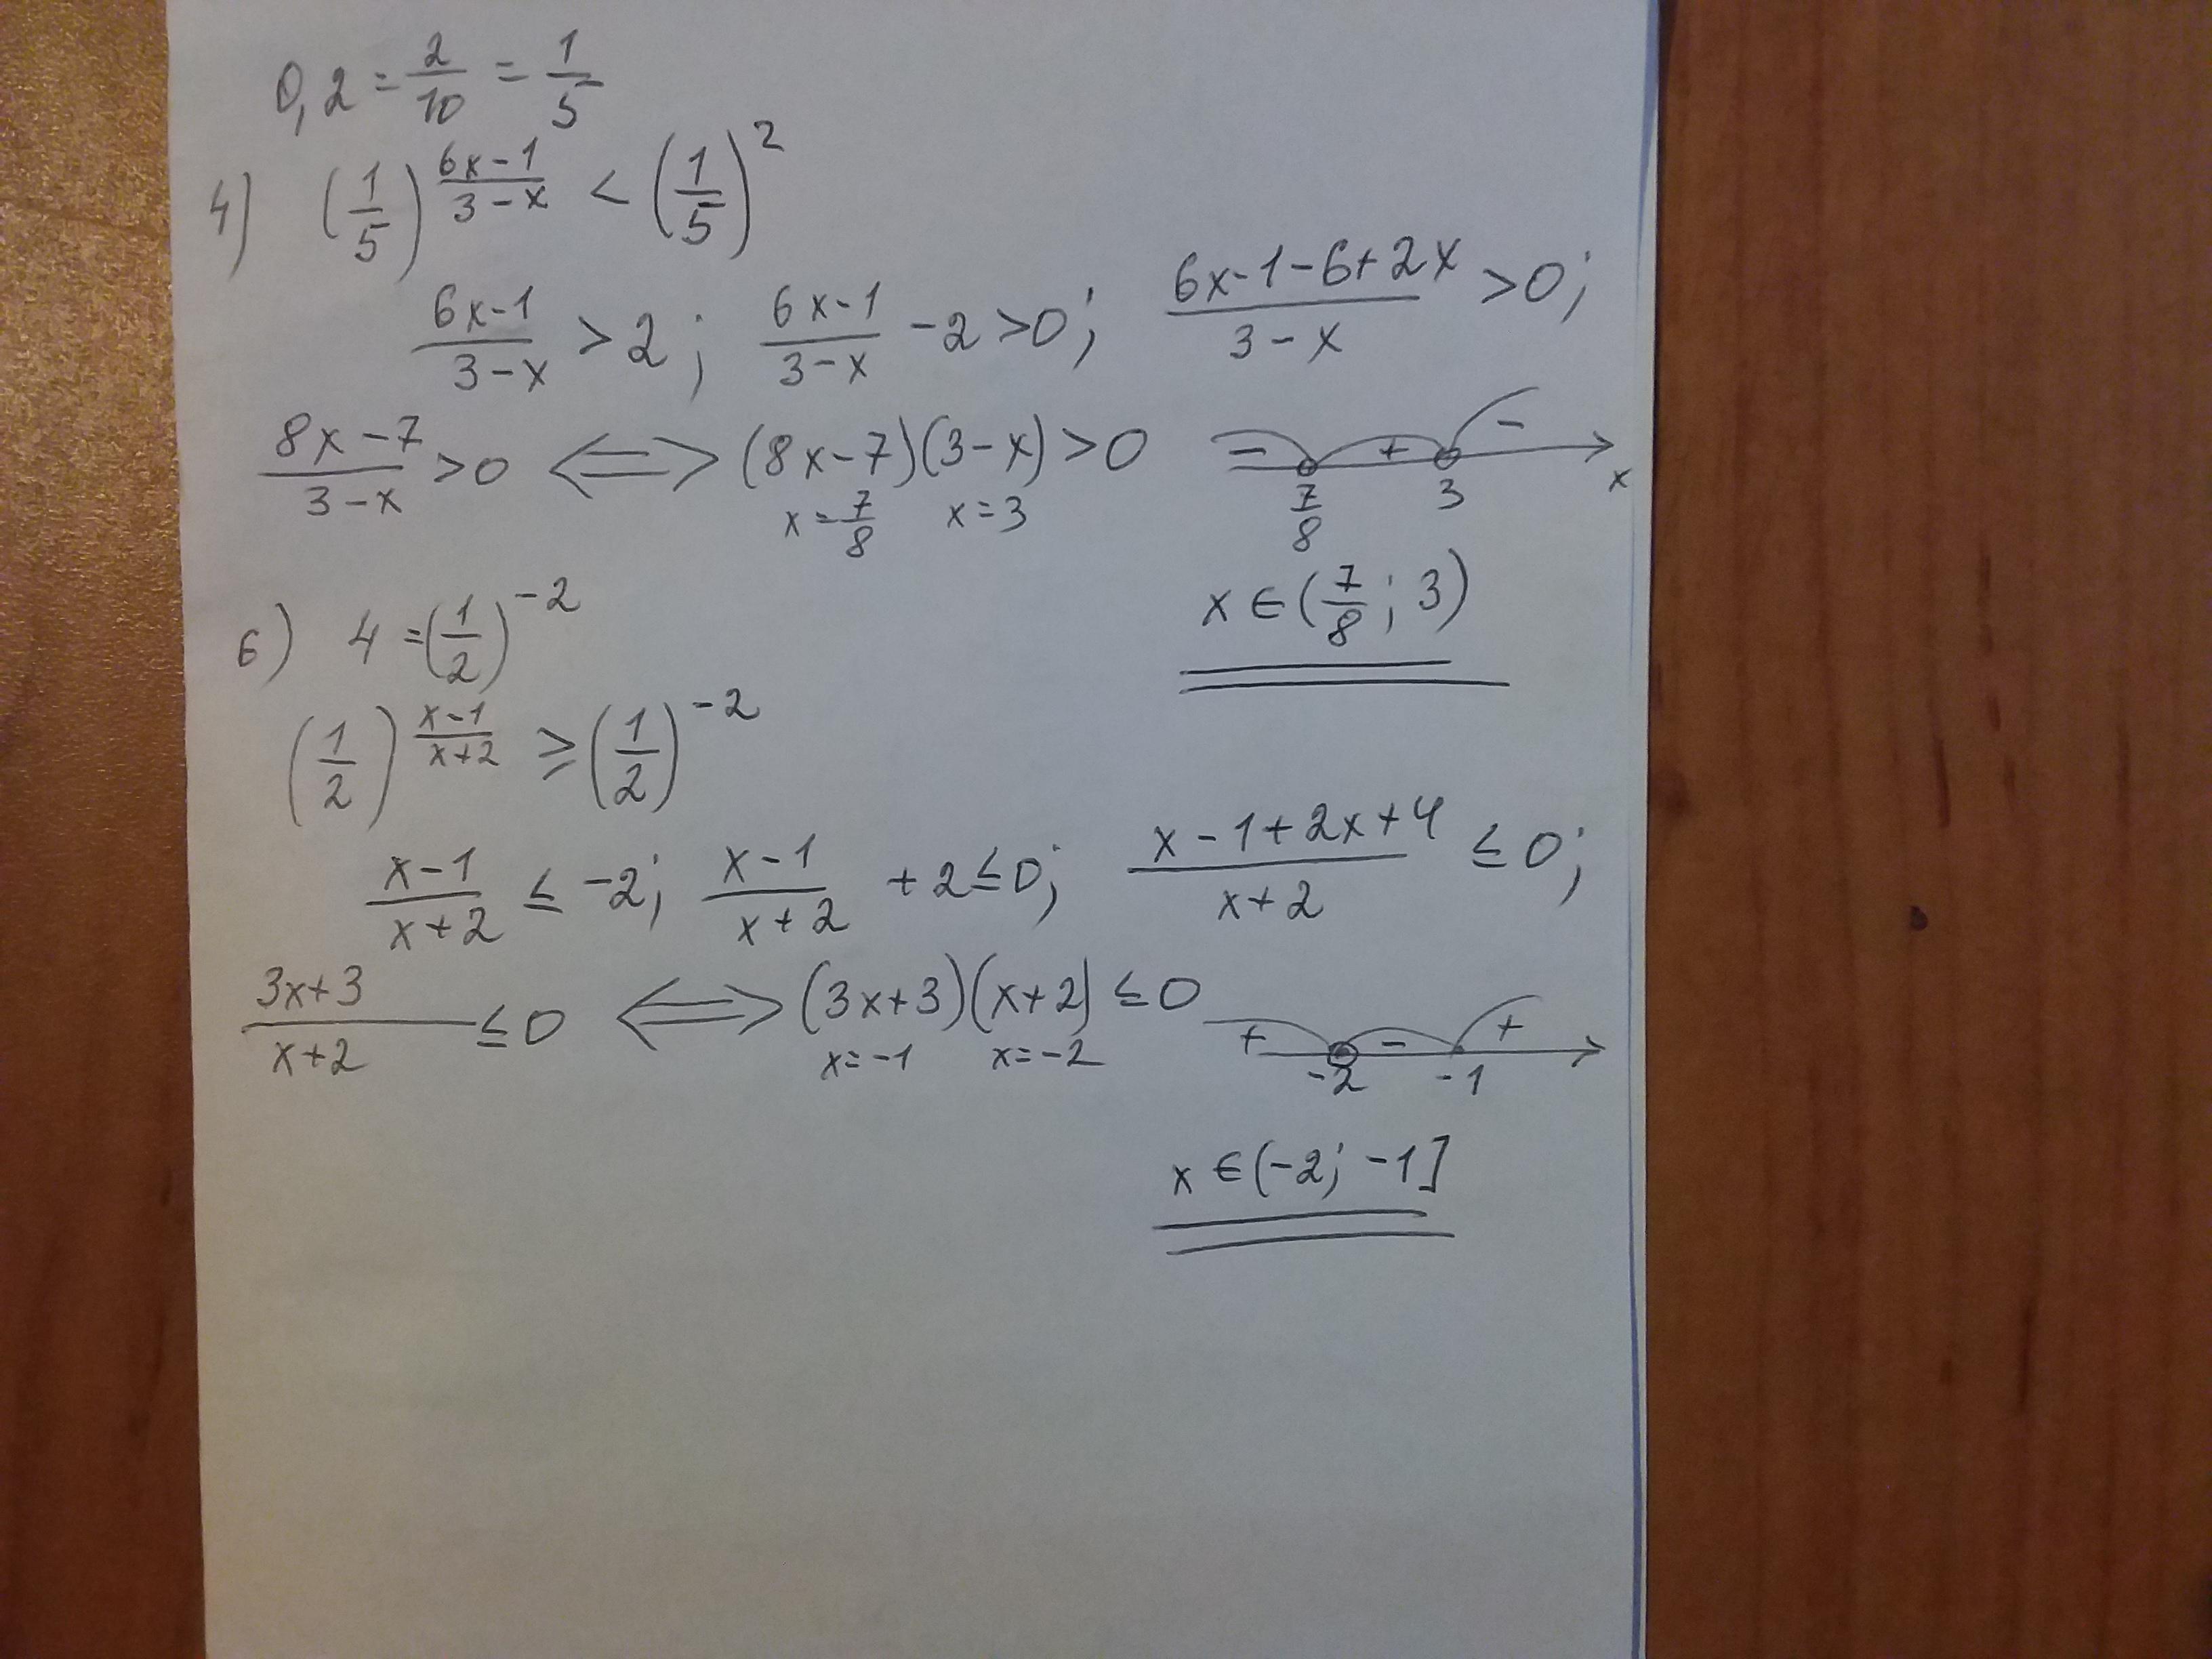 0,2 = 2/10 = 1/5
4) (1/5)^((6x-1)/(3-x)) < (1/5)^2
(6x-1)/(3-x) > 2; (6x-1)/(3-x) - 2 > 0; (6x-1-6+2x)/(3-x) > 0;
(8x-7)/(3-x) > 0 <=> (8x-7)(3-x) > 0 - + - x
x = 7/8 x = 3 7/8 3
x ∈ (7/8; 3)
6) 4 = (1/2)^(-2)
(1/2)^((x-1)/(x+2)) ⩾ (1/2)^(-2)
(x-1)/(x+2) ≤ -2; (x-1)/(x+2) + 2 ≤ 0; (x-1+2x+4)/(x+2) ≤ 0;
(3x+3)/(x+2) ≤ 0 <=> (3x+3)(x+2) ≤ 0 + - +
x = -1 x = -2 -2 -1
x ∈ (-2; -1]